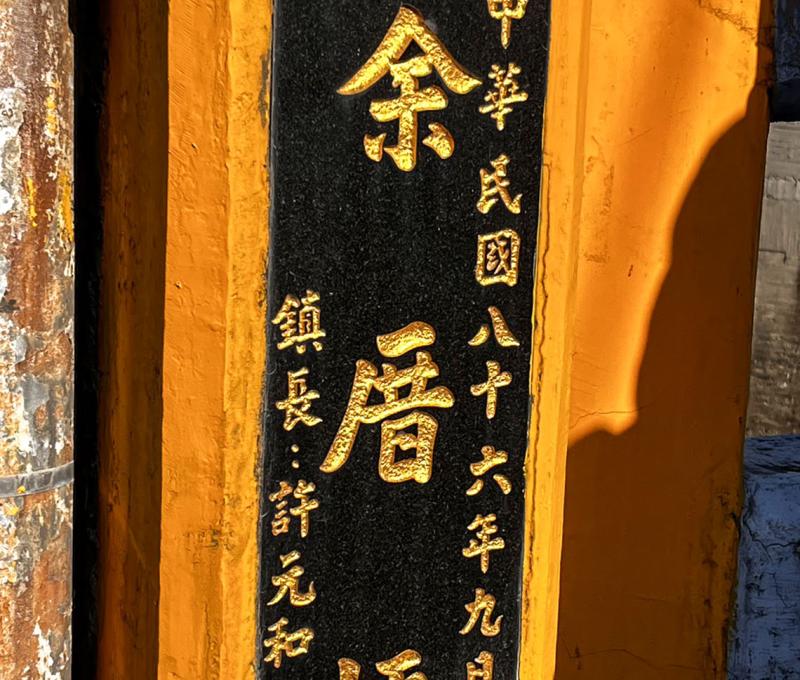 中華民國八十六年九月
余厝
鎮長：許元和